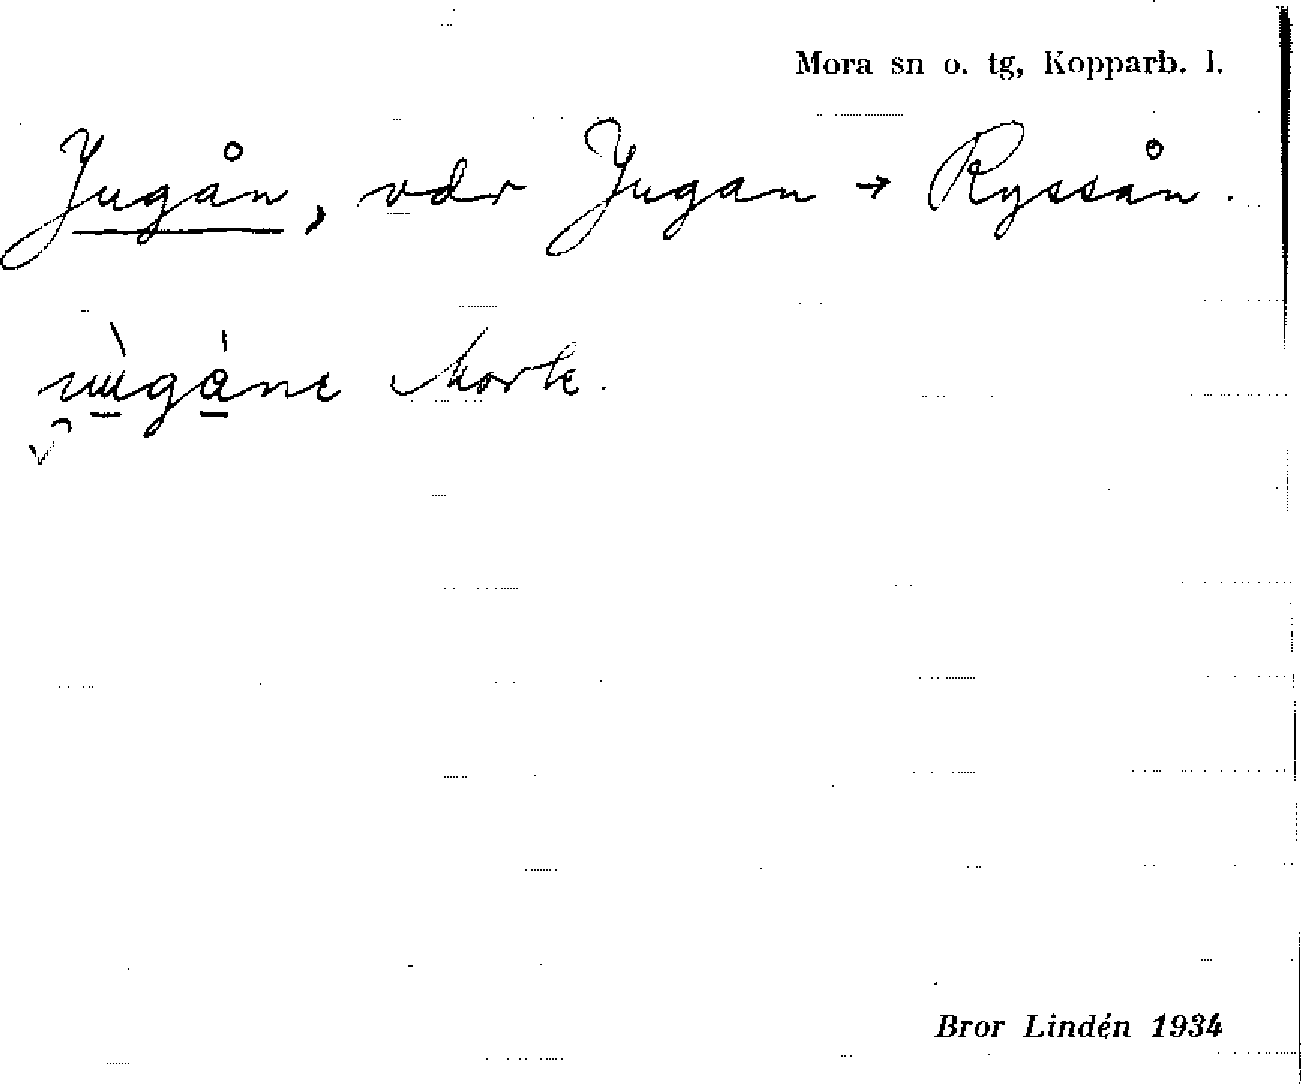 Mora sn o. tg, Kopparb. l.
Jugån, vdr Jugan → Ryssån.
Mork.
Bror Lindén 1934